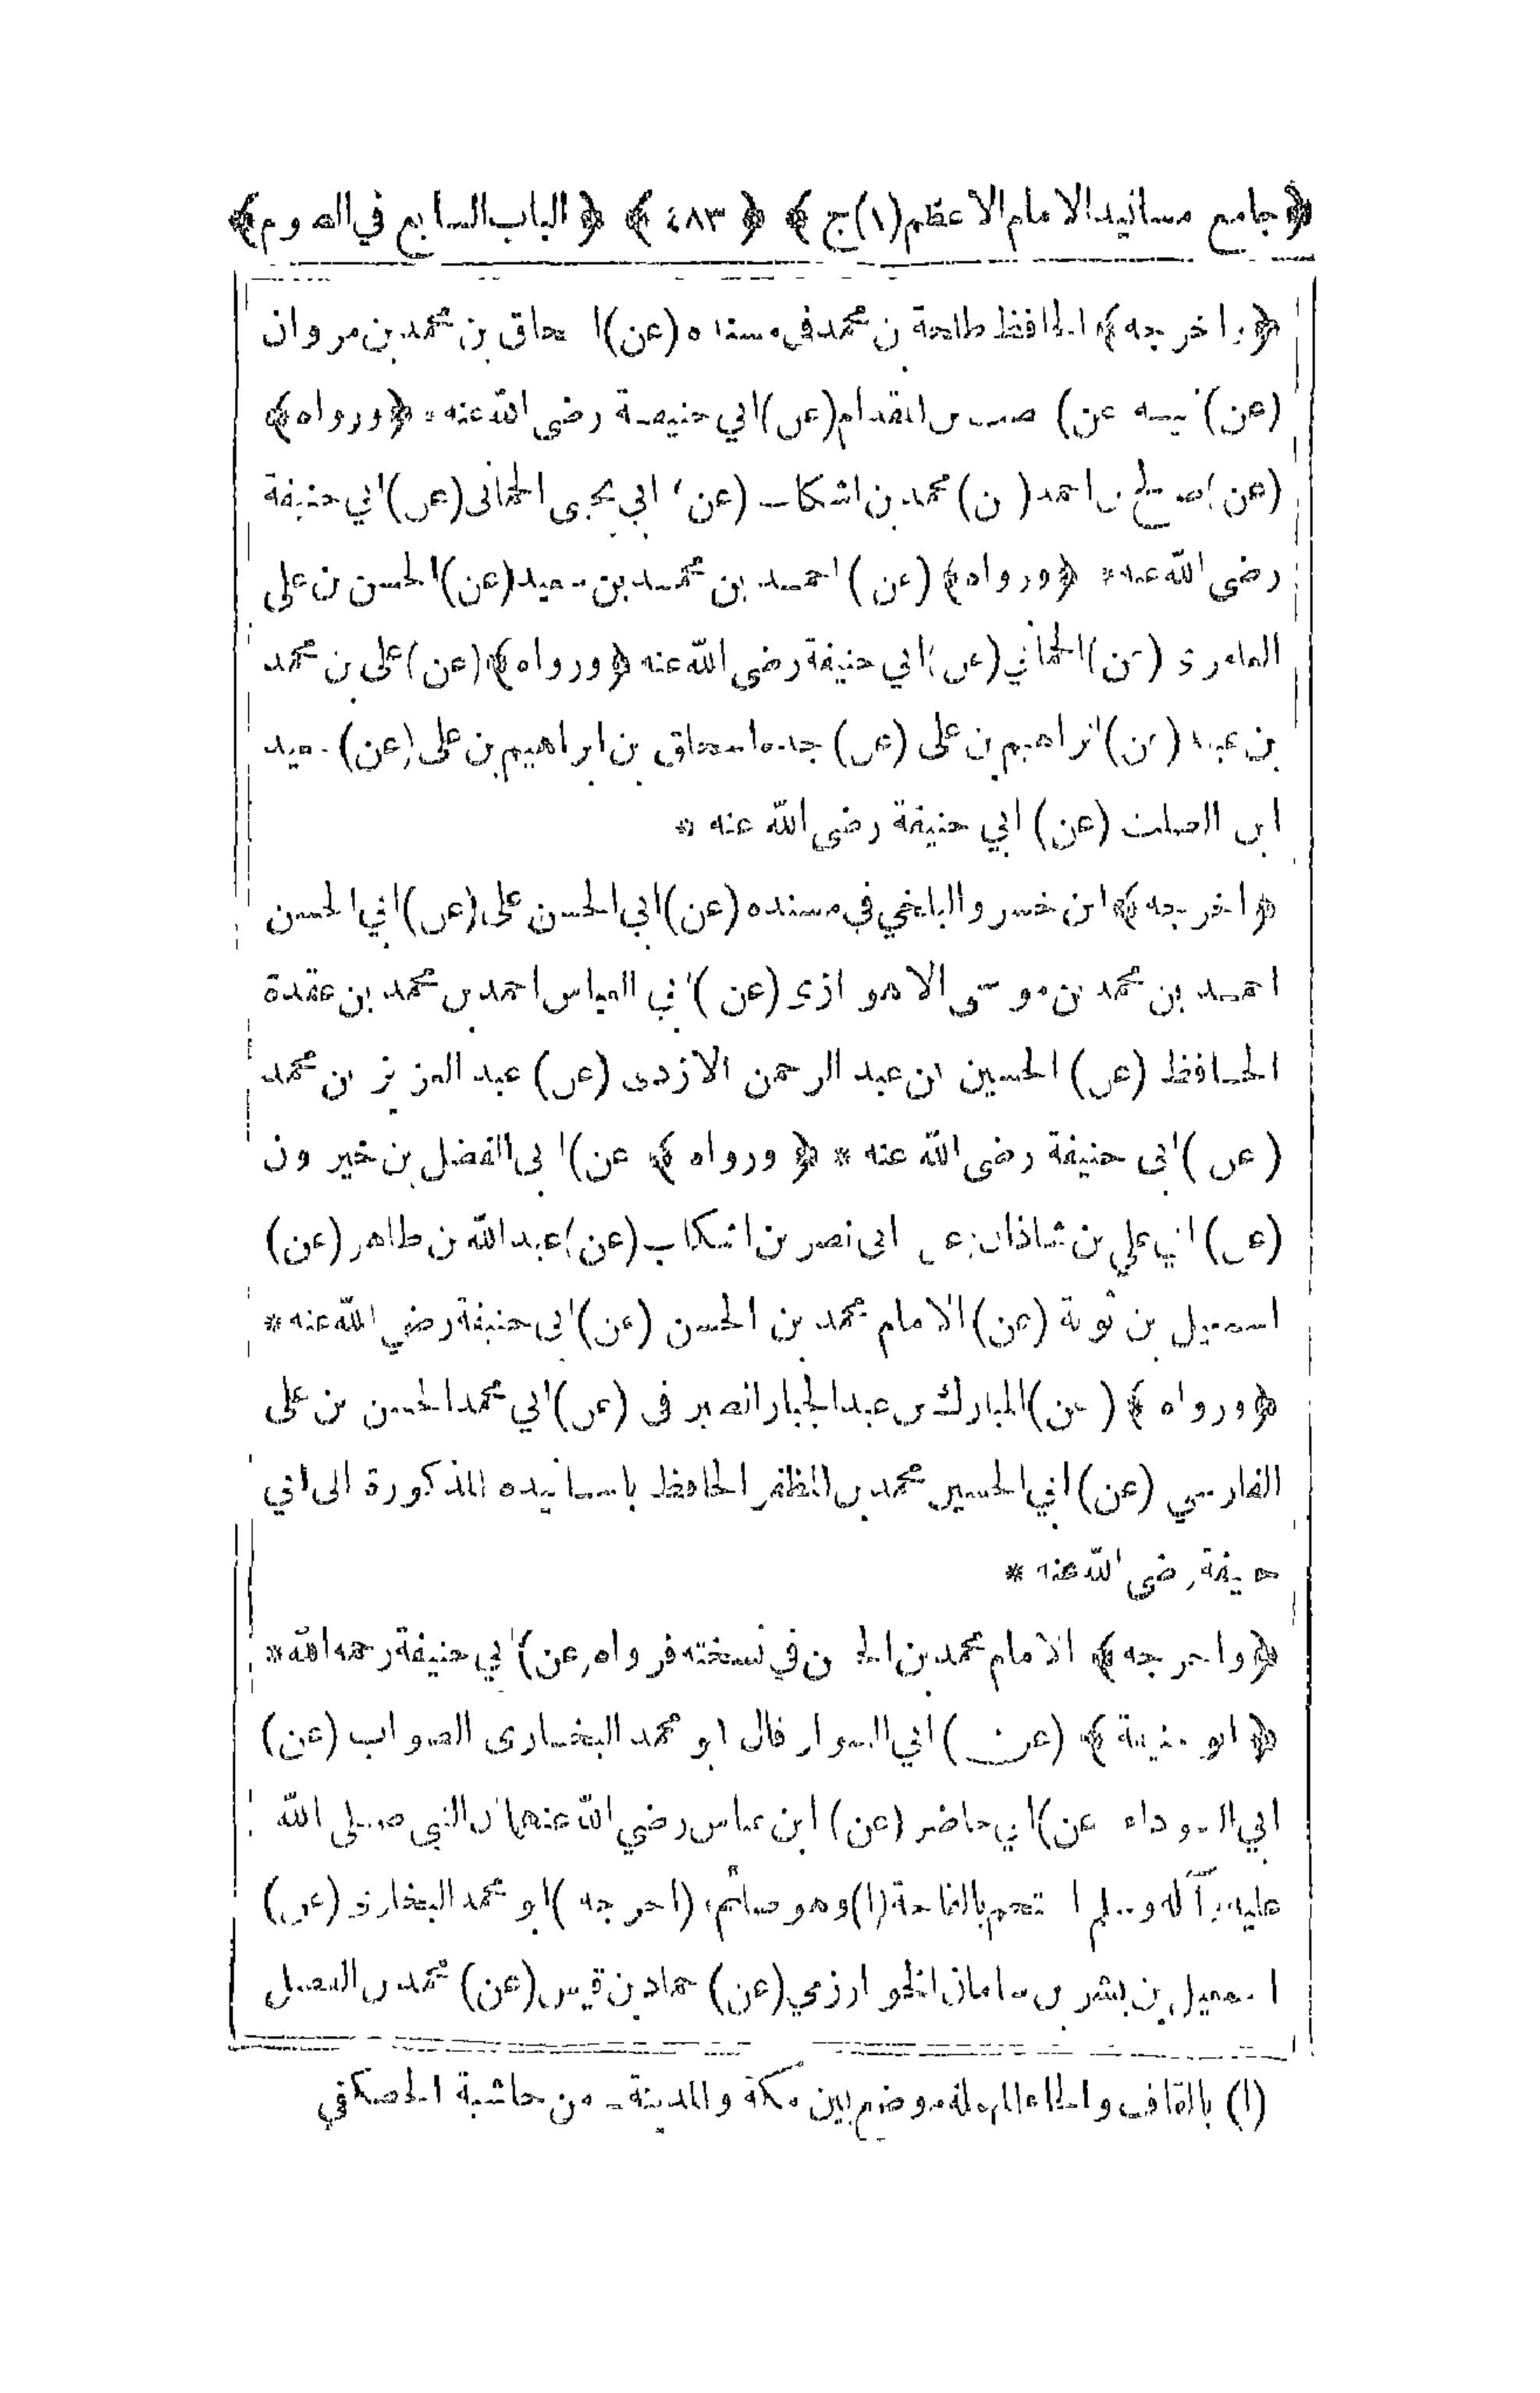 ﴿جامع مسانيد الامام الاعظم (١) ج﴾ ﴿٤٨٣﴾ ﴿الباب السابع في الصوم﴾
﴿واخرجه﴾ الحافظ طلحة بن محمد في مسنده (عن) اسحاق بن محمد بن مروان
(عن) ابيه (عن) مصعب بن المقدام (عن) ابي حنيفة رضى الله عنه * ﴿ورواه﴾
(عن) صالح بن احمد (عن) محمد بن اشكاب (عن) ابي يحيى الحمانى (عن) ابي حنيفة
رضى الله عنه * ﴿ورواه﴾ (عن) احمد بن محمد بن سعيد (عن) الحسن بن على
العامرى (عن) الحماني (عن) ابي حنيفة رضى الله عنه ﴿ورواه﴾ (عن) على بن محمد
بن عبيد (عن) ابراهيم بن على (عن) جده اسحاق بن ابراهيم بن على (عن) سعيد
ابن الصلت (عن) ابي حنيفة رضى الله عنه *
﴿اخرجه﴾ ابن خسرو البلخي في مسنده (عن) ابى الحسن على (عن) ابي الحسن
احمد بن محمد بن موسى الاهوازى (عن) ابي العباس احمد بن محمد بن عقدة
الحافظ (عن) الحسين بن عبد الرحمن الازدى (عن) عبد العزيز بن محمد
(عن) ابى حنيفة رضى الله عنه * ﴿ورواه﴾ (عن) ابى الفضل بن خيرون
(عن) ابي علي بن شاذان (عن) ابى نصر بن اشكاب (عن) عبد الله بن طاهر (عن)
اسمعيل بن توبة (عن) الامام محمد بن الحسن (عن) ابى حنيفة رضي الله عنه *
﴿ورواه﴾ (عن) المبارك بن عبد الجبار الصيرفى (عن) ابي محمد الحسن بن على
الفارسي (عن) ابي الحسين محمد بن المظفر الحافظ باسانيده المذكورة الى ابي
حنيفة رضى الله عنه *
﴿واخرجه﴾ الامام محمد بن الحسن في نسخته فرواه (عن) ابي حنيفة رحمه الله *
﴿ابو حنيفة﴾ (عن) ابي السوار قال ابو محمد البخارى الصواب (عن)
ابي السوداء (عن) ابي حاضر (عن) ابن عباس رضي الله عنهما ان النبي صلى الله
عليه وآله وسلم احتجم بالقاحة (١) وهو صائم (اخرجه) ابو محمد البخارى (عن)
اسمعيل بن بشر بن سامان الخوارزمي (عن) حماد بن قيس (عن) محمد بن الفضل
(١) بالقاف والحاء المهملة موضع بين مكة والمدينة - من حاشية الحصكفي